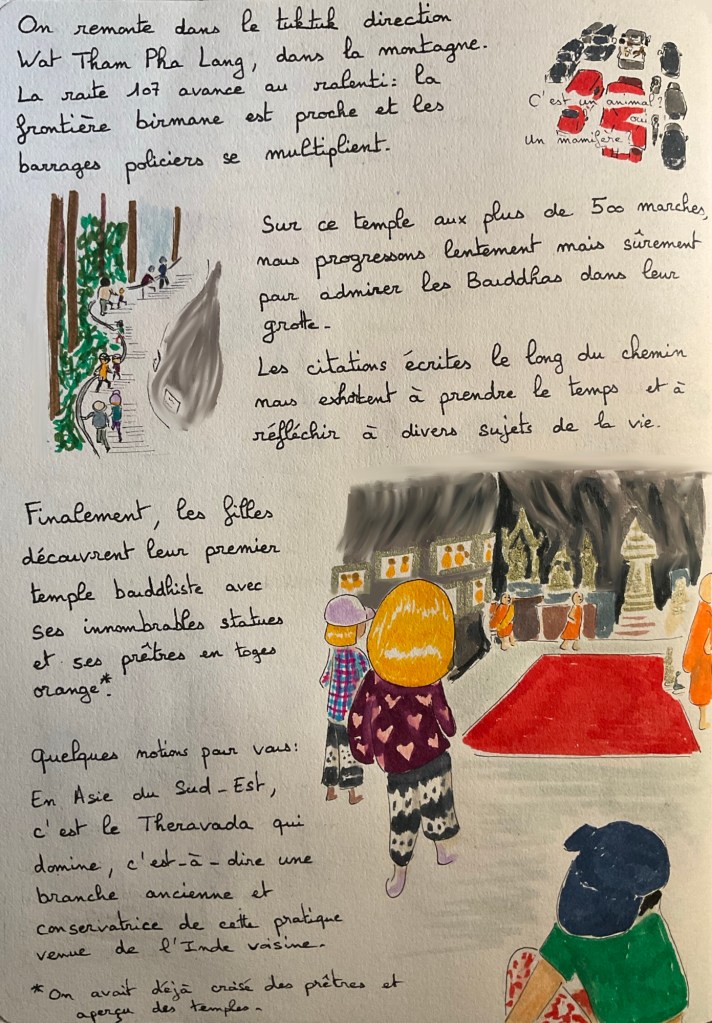 On remonte dans le tuktuk direction
Wat Tham Pha Lang, dans la montagne.
La route 107 avance au ralenti : la
frontière birmane est proche et les
barrages policiers se multiplient.
C'est un animal ?
oui
un mamifère ?
Sur ce temple aux plus de 500 marches,
nous progressons lentement mais sûrement
pour admirer les Bouddhas dans leur
grotte.
Les citations écrites le long du chemin
nous exhortent à prendre le temps et à
réfléchir à divers sujets de la vie.
Finalement, les filles
découvrent leur premier
temple bouddhiste avec
ses innombrables statues
et ses prêtres en toges
orange*.
Quelques notions pour vous :
En Asie du Sud-Est,
c'est le Theravada qui
domine, c'est-à-dire une
branche ancienne et
conservatrice de cette pratique
venue de l'Inde voisine.
*On avait déjà croisé des prêtres et
aperçu des temples.